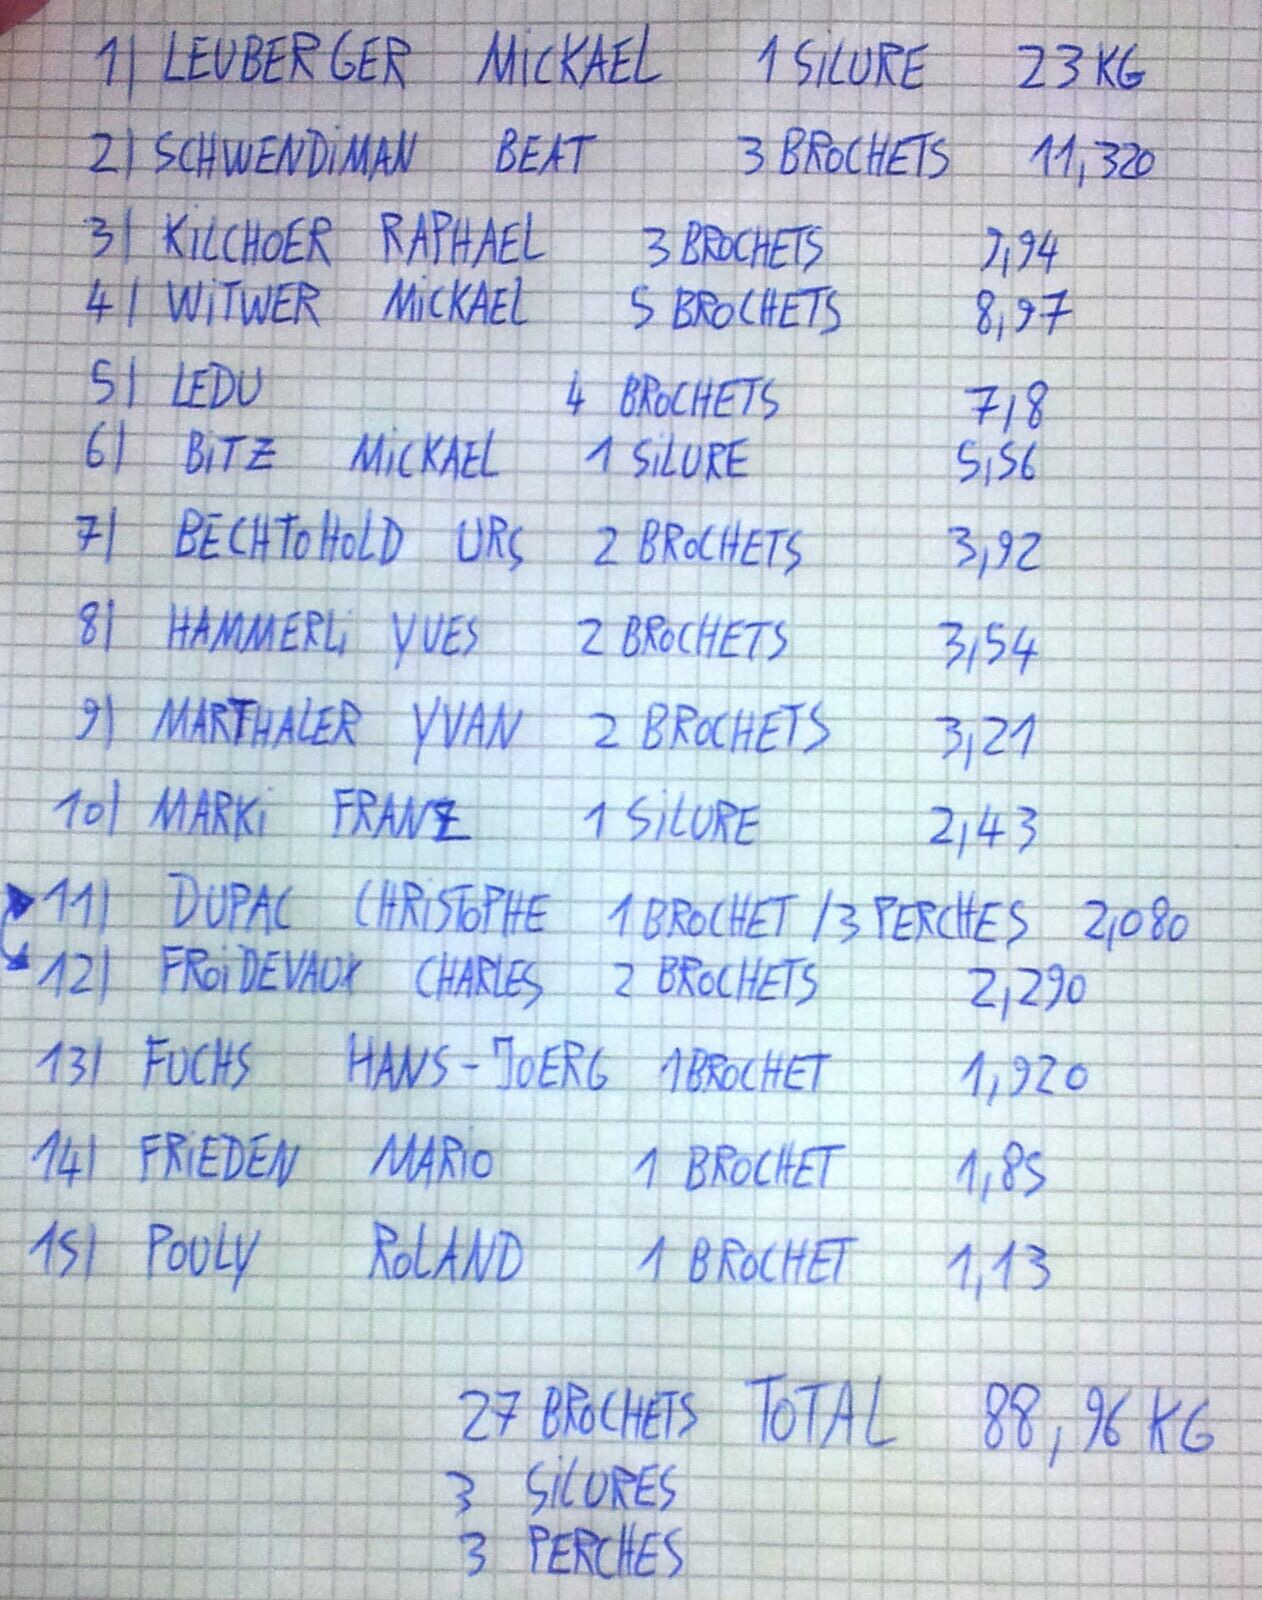 1) LEUBERGER MiCKAEL 1 SiLURE 23 KG
2) SCHWENDiMAN BEAT 3 BROCHETS 11,320
3) KiLCHOER RAPHAEL 3 BROCHETS 9,94
4) WiTWER MiCKAEL 5 BROCHETS 8,97
5) LEDU 4 BROCHETS 7,8
6) BiTZ MiCKAEL 1 SiLURE 5,56
7) BECHTOHOLD URS 2 BROCHETS 3,92
8) HAMMERLi YVES 2 BROCHETS 3,54
9) MARTHALER YVAN 2 BROCHETS 3,21
10) MARKi FRANZ 1 SiLURE 2,43
11) DUPAC CHRiSTOPHE 1 BROCHET / 3 PERCHES 2,080
12) FROiDEVAUX CHARLES 2 BROCHETS 2,290
13) FUCHS HANS-JOERG 1 BROCHET 1,920
14) FRiEDEN MARiO 1 BROCHET 1,85
15) POULY ROLAND 1 BROCHET 1,13
27 BROCHETS TOTAL 88,96 KG
3 SiLURES
3 PERCHES